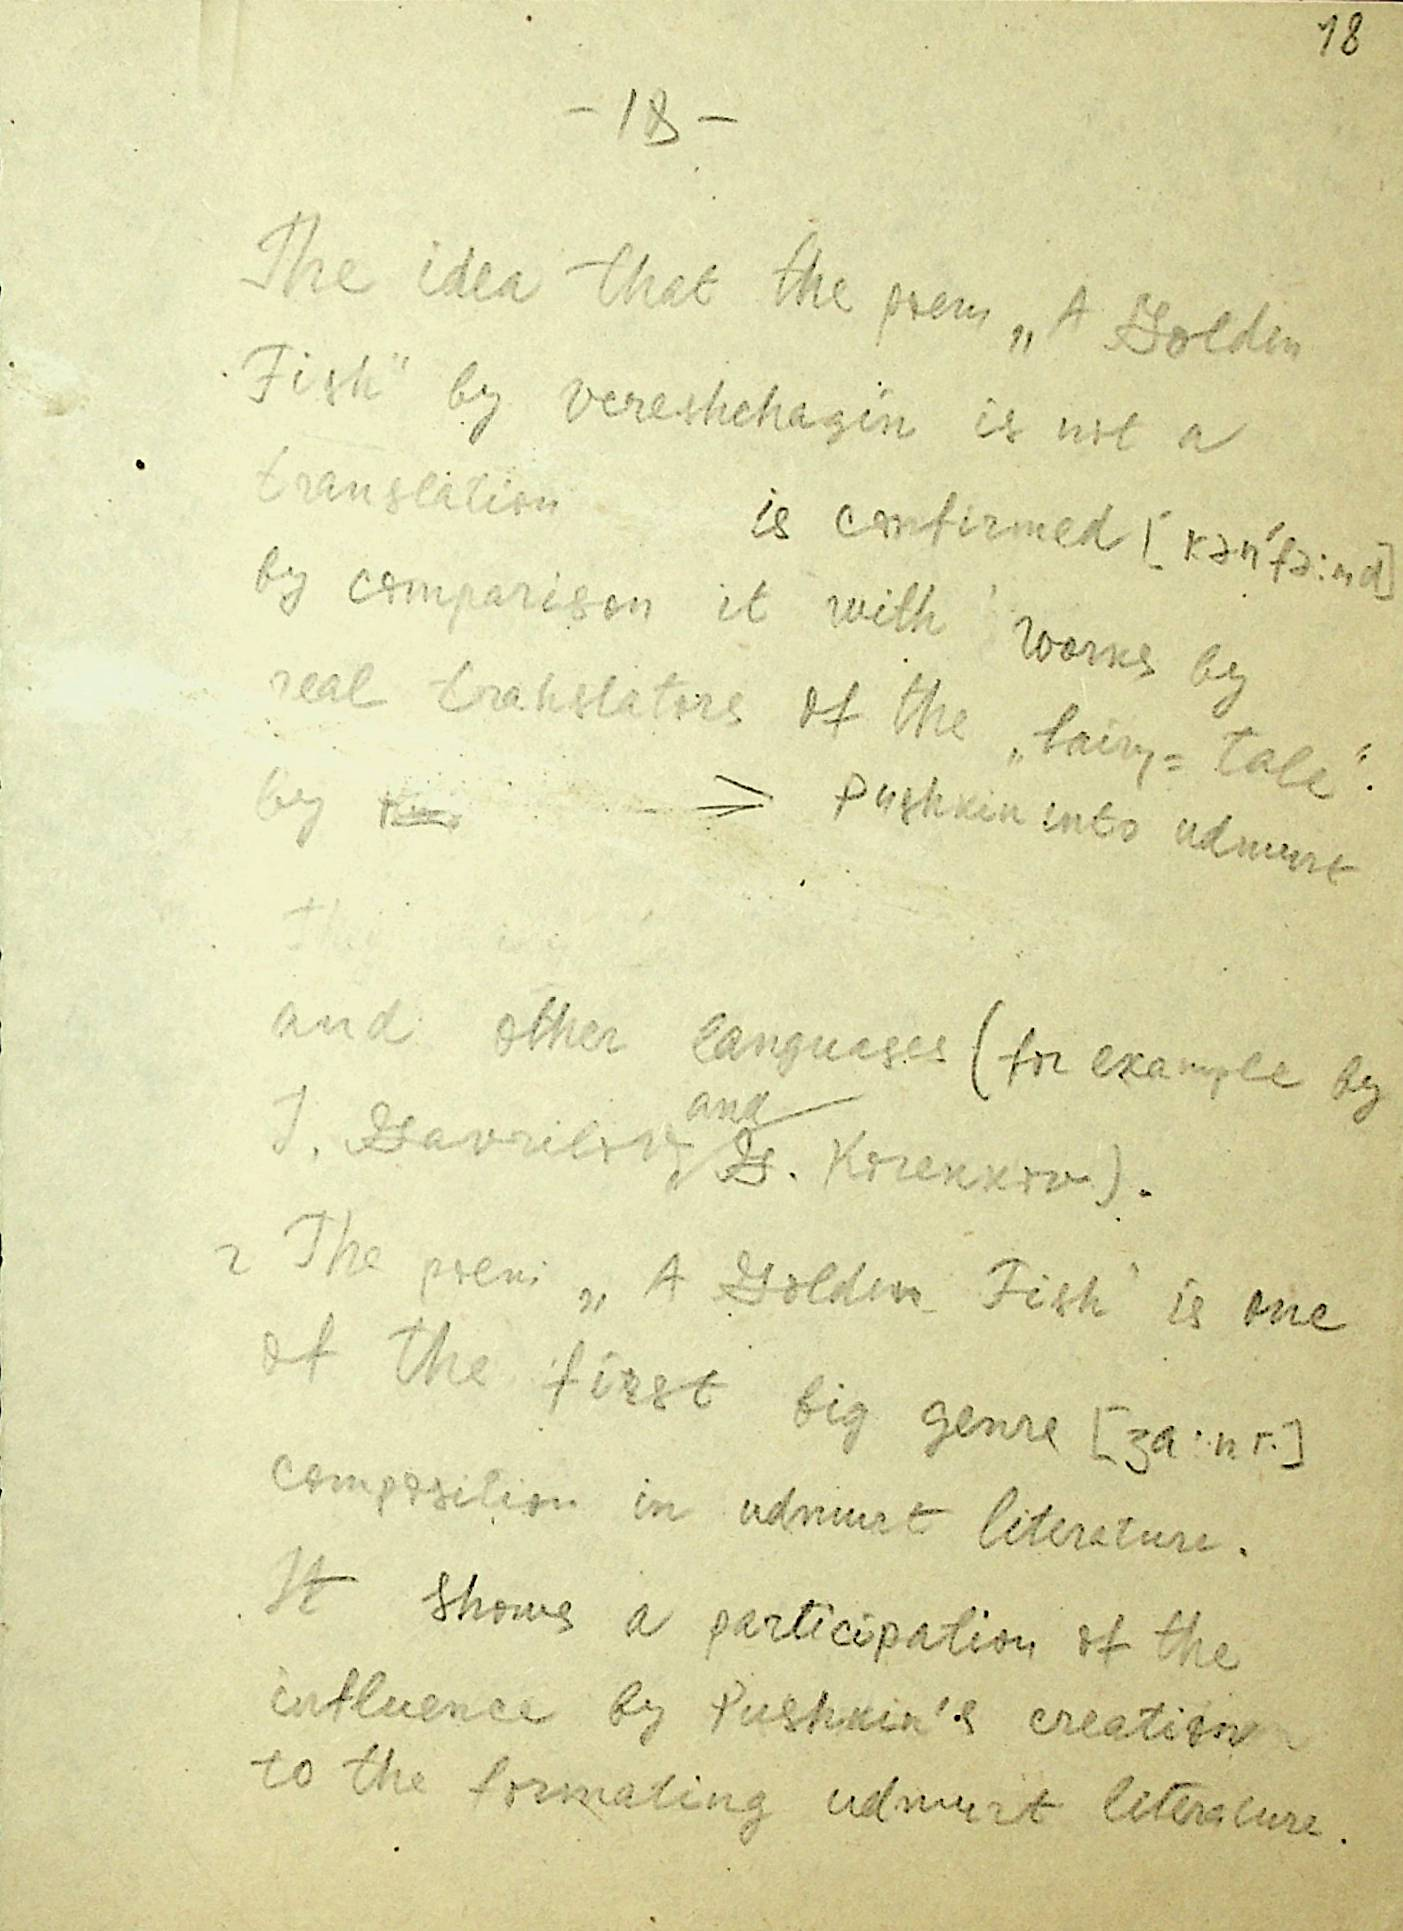 18
- 18 -
The idea that the poem „A Golden
Fish" by Vereshchagin is not a
translation is confirmed [kən'fə:md]
by comparison it with works by
real translators of the „fairy = tale".
by → Pushkin into udmurt
and other languages (for example by
and
I. Gavrilov, G. Korenkov).
2 The poem „A Golden Fish" is one
of the first big genre [ʒa:nr]
composition in udmurt literature.
It shows a participation of the
influence by Pushkin's creation
to the formating udmurt literature.